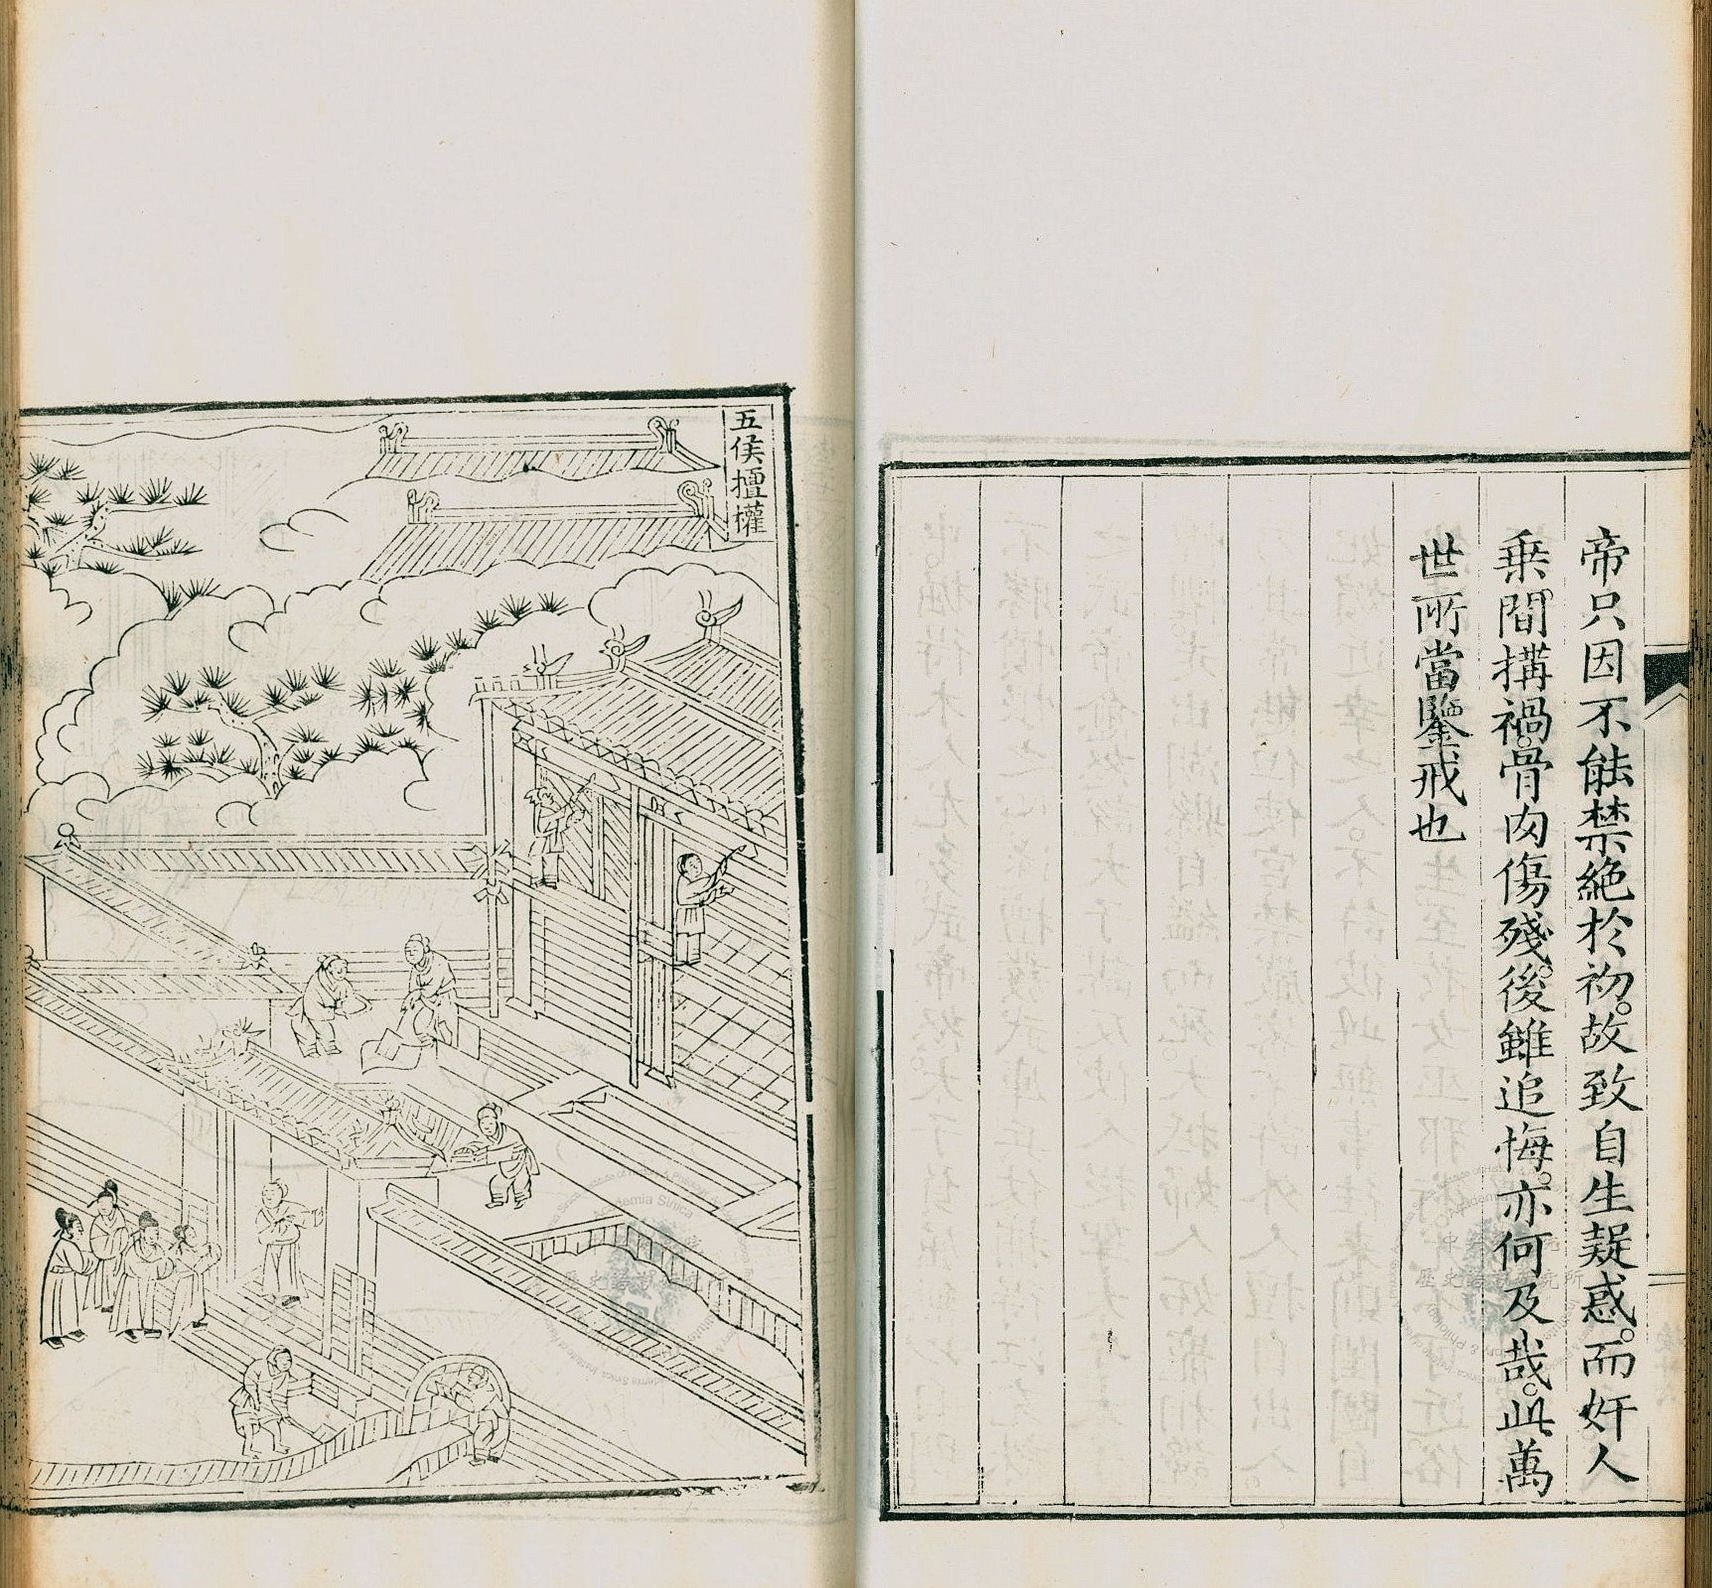 帝只因不能禁絶於初。故致自生疑惑。而奸人
乗間搆禍。骨肉傷殘。後雖追悔。亦何及哉。此萬
世所當鑒戒也
五侯擅權